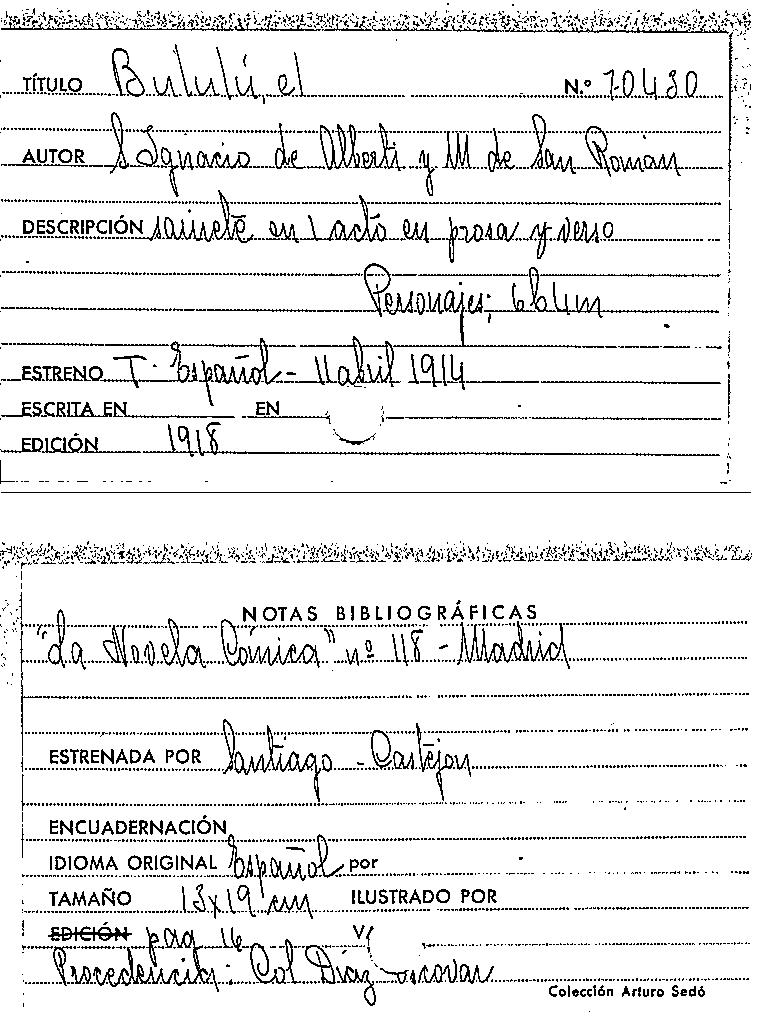 TÍTULO Bululú, el N.º 70430
AUTOR S. Ignacio de Alberti y M de San Román
DESCRIPCIÓN sainete en 1 acto en prosa y verso
Personajes;
ESTRENO T. Español - 11 abril 1914
ESCRITA EN EN
EDICIÓN 1918
NOTAS BIBLIOGRÁFICAS
"La Novela Cómica" nº 118 - Madrid
ESTRENADA POR Santiago - Castejon
ENCUADERNACIÓN
IDIOMA ORIGINAL Español por
TAMAÑO 13x19 cm ILUSTRADO POR
EDICIÓN pag 16
Procedencia: Col Díaz
Colección Arturo Sedó